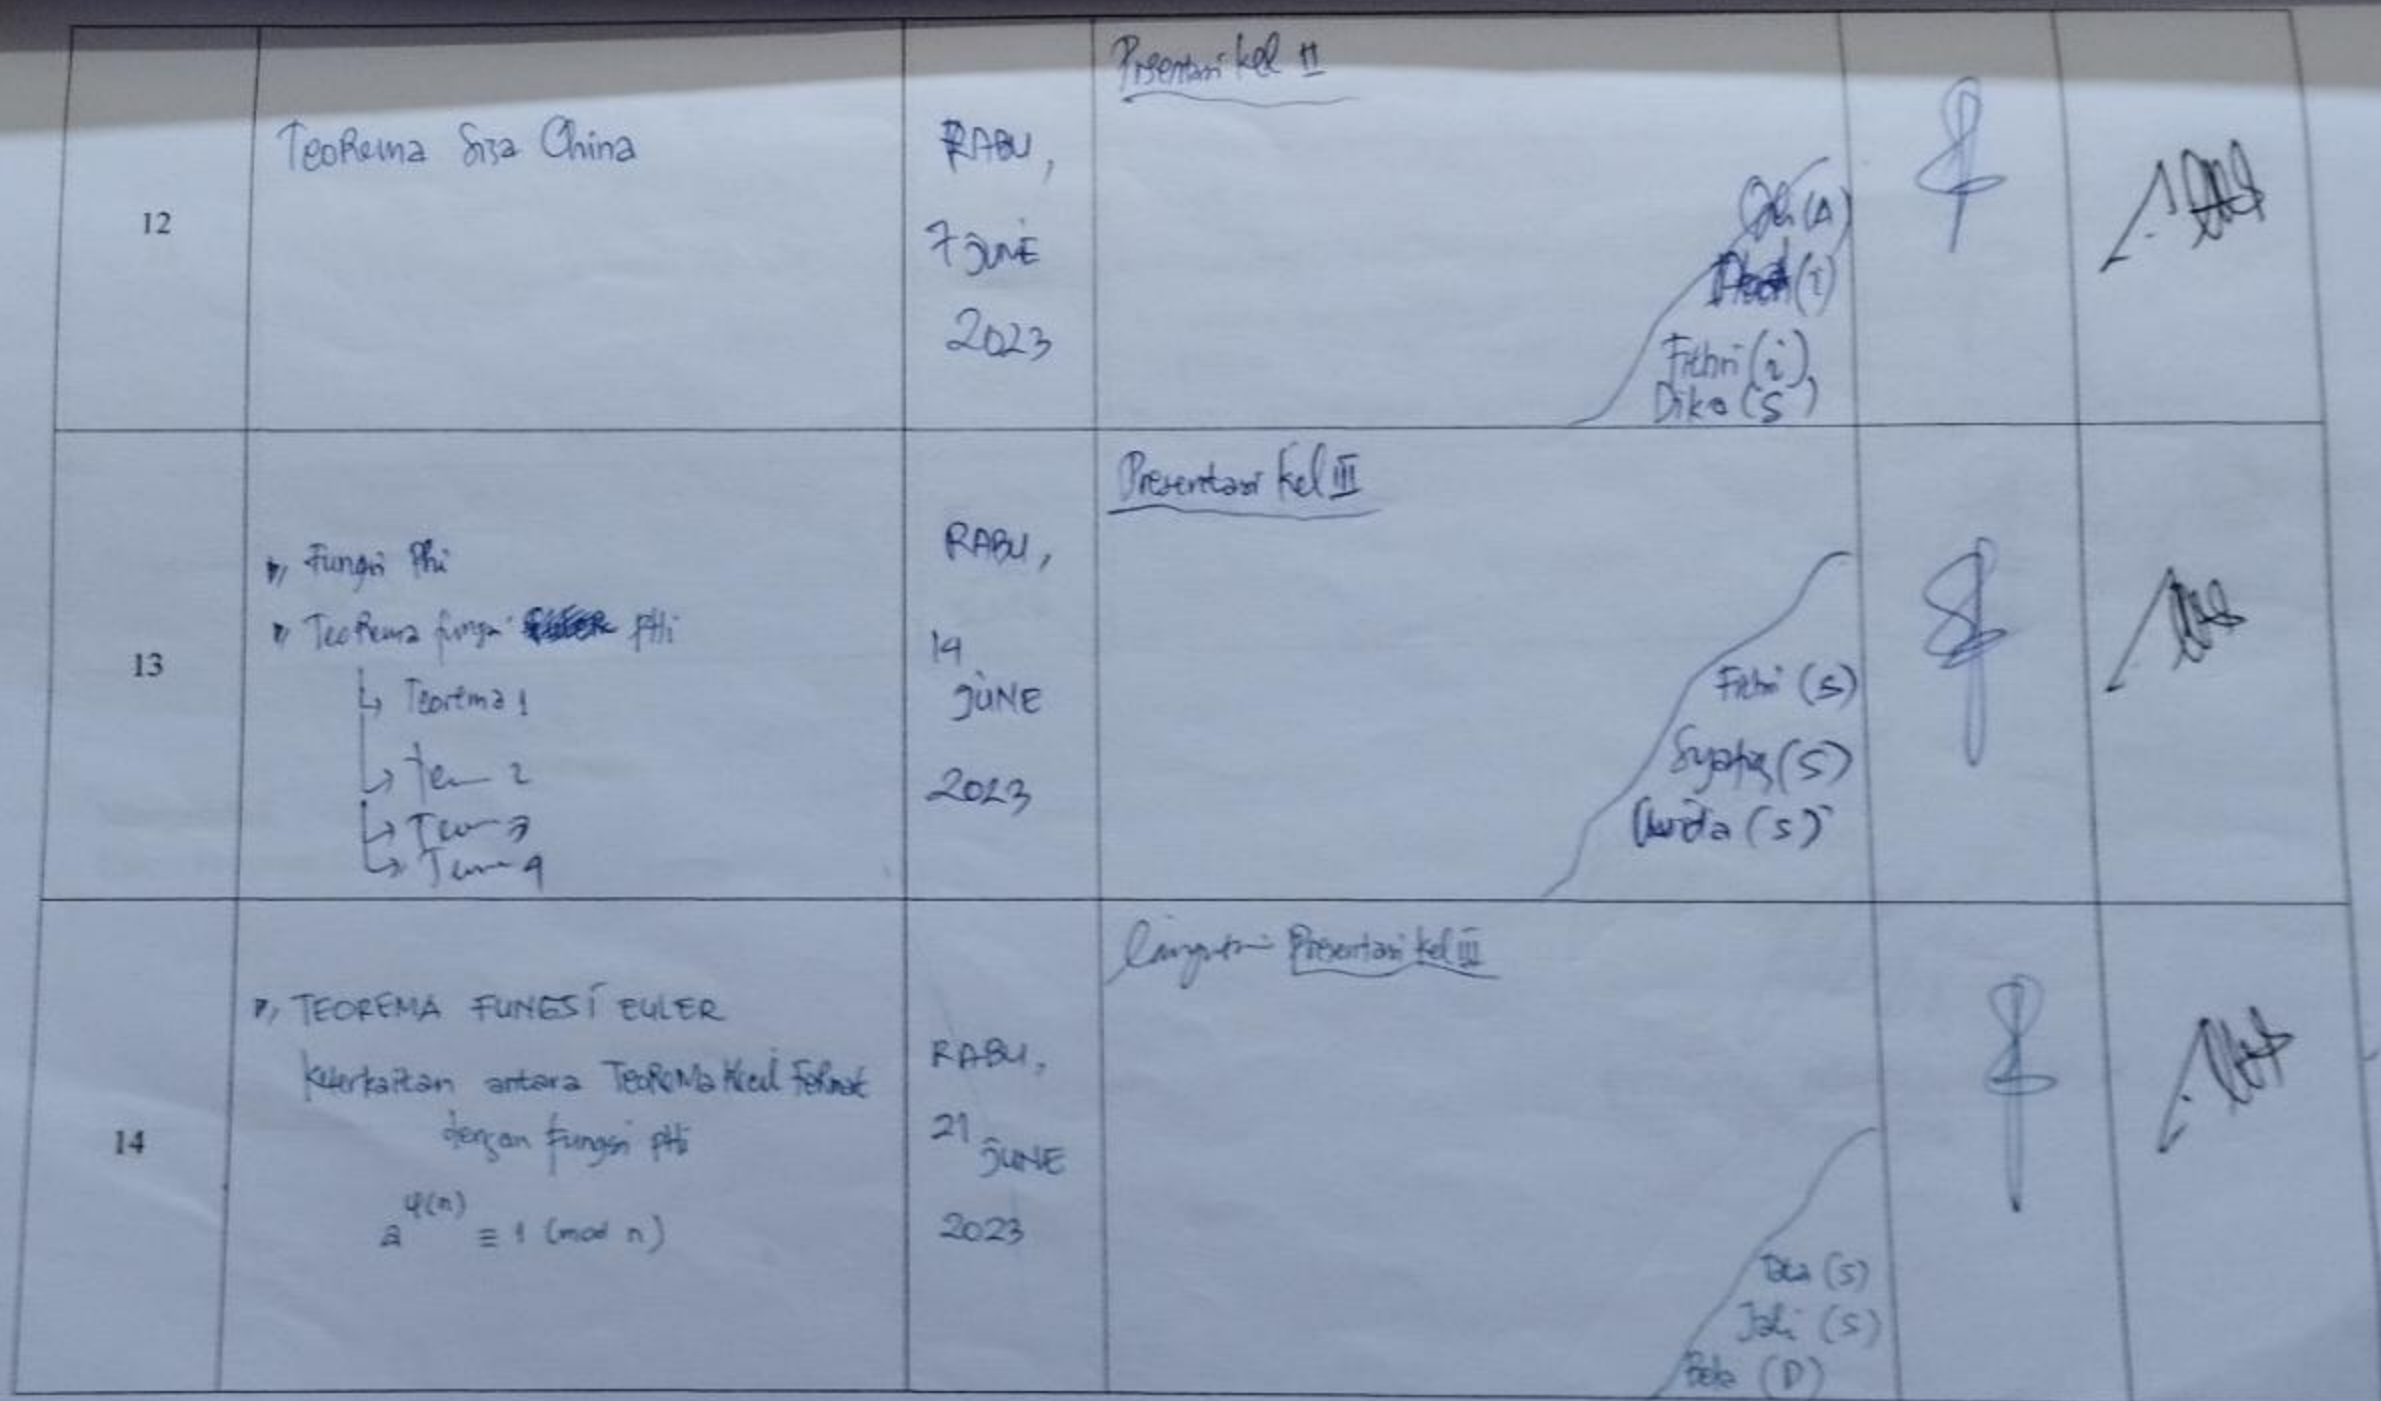 12
Teorema Sisa China
RABU,
7 JUNE
2023
Presentasi kel II
(A)
(i)
Fithri (i)
Dika (S)
13
Fungsi Phi
Teorema fungsi PHi
Teorema 1
Teo 2
Teo 3
Teo 4
RABU,
14
JUNE
2023
Presentasi Kel III
Fithri (S)
Syafiq (S)
(S)
14
TEOREMA FUNGSI EULER
Keterkaitan antara Teorema Kecil Fermat
dengan fungsi PHi
a^φ(n) ≡ 1 (mod n)
RABU,
21
JUNE
2023
Presentasi kel III
(S)
Jali (S)
Bela (D)